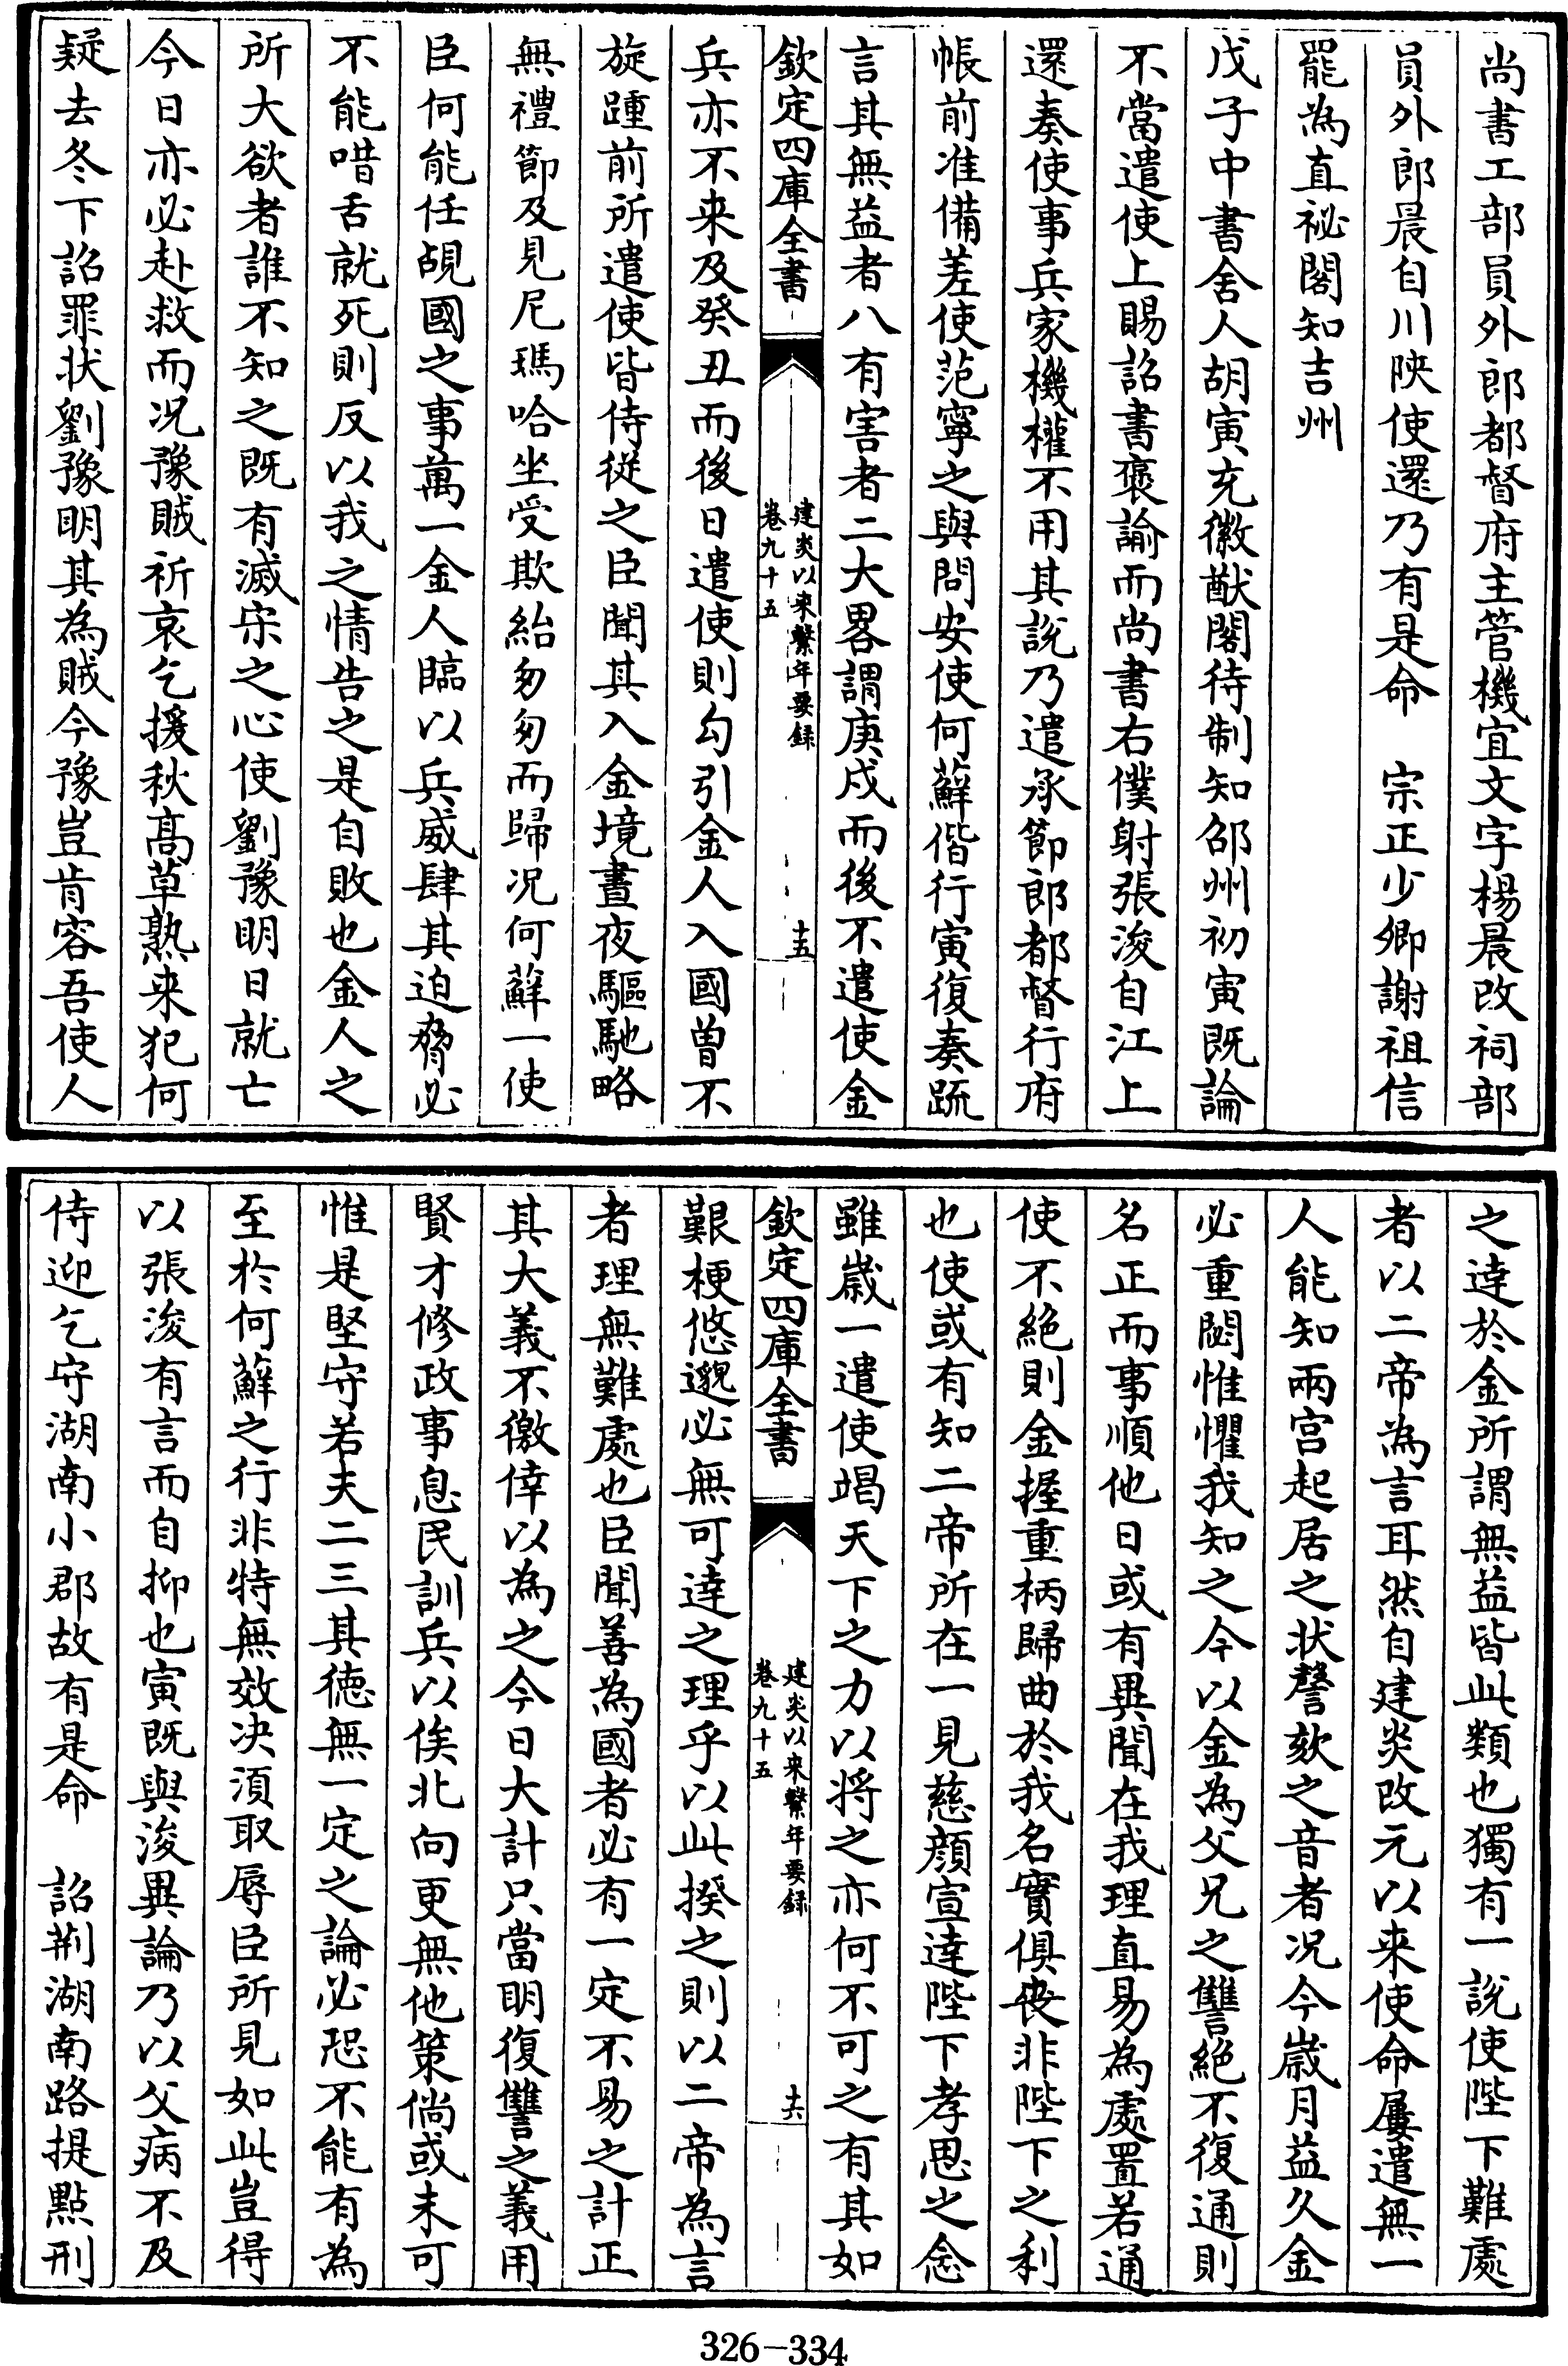 尚書工部員外郎都督府主管機宜文字楊晨改祠部
員外郎晨自川陜使還乃有是命　宗正少卿謝祖信
罷為直祕閣知吉州
戊子中書舍人胡寅充徽猷閣待制知邵州初寅既論
不當遣使上賜詔書襃諭而尚書右僕射張浚自江上
還奏使事兵家機權不用其說乃遣承節郎都督行府
帳前准備差使范寧之與問安使何蘚偕行寅復奏疏
言其無益者八有害者二大畧謂庚戌而後不遣使金
欽定四庫全書
建炎以來繫年要錄
卷九十五
十五
兵亦不来及癸丑而後日遣使則勾引金人入國曽不
旋踵前所遣使皆侍從之臣聞其入金境晝夜驅馳略
無禮節及見尼瑪哈坐受欺紿匆匆而歸况何蘚一使
臣何能任覘國之事萬一金人臨以兵威肆其迫脅必
不能㗖舌就死則反以我之情告之是自敗也金人之
所大欲者誰不知之既有滅宋之心使劉豫明日就亡
今日亦必赴救而况豫賊祈哀乞援秋髙草熟来犯何
疑去冬下詔罪状劉豫明其為賊今豫豈肯容吾使人
之達於金所謂無益皆此類也獨有一說使陛下難處
者以二帝為言耳然自建炎改元以来使命屢遣無一
人能知兩宫起居之状謦欬之音者况今嵗月益久金
必重閟惟懼我知之今以金為父兄之讐絶不復通則
名正而事順他日或有異聞在我理直易為處置若通
使不絶則金握重柄歸曲於我名實俱喪非陛下之利
也使或有知二帝所在一見慈顔宣達陛下孝思之念
雖嵗一遣使竭天下之力以将之亦何不可之有其如
欽定四庫全書
建炎以來繫年要錄
卷九十五
十六
艱梗悠邈必無可達之理乎以此揆之則以二帝為言
者理無難處也臣聞善為國者必有一定不易之計正
其大義不徼倖以為之今日大計只當明復讐之義用
賢才修政事息民訓兵以俟北向更無他策倘或未可
惟是堅守若夫二三其徳無一定之論必恐不能有為
至於何蘚之行非特無效决須取辱臣所見如此豈得
以張浚有言而自抑也寅既與浚異論乃以父病不及
侍迎乞守湖南小郡故有是命　詔荆湖南路提點刑
326-334